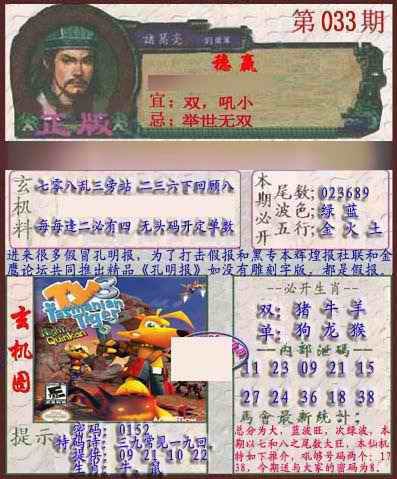 第033期
諸葛亮
德赢
宜：双，吼小
忌：举世无双
正版
玄机料
七零八乱三旁站 二三六下回顾八
每每逢二必有四 无头码开定单数
本期必开
尾数;023689
波色;绿 蓝
五行;金 火 土
进来很多假冒孔明报，为了打击假报和黑专本辉煌报社联和金
鹰论坛共同推出精品《孔明报》如没有雕刻字版，都是假报。
玄机图
TY3
Tasmanian
Tiger
Night
Quinkan
--必开生肖--
双: 猪 牛 羊
单: 狗 龙 猴
--内部泄码--
11 23 09 21 15
27 24 36 18 38
馬會最新統計:
总分为大，蓝波旺，次绿波，本
期以七和八之尾数大旺，本仙机
特如下推介，吼够号码两个：17
38，今期送与大家的密码为8．
提示
密码: 0152
特码诗: 三九常见一九回
提供: 09 21 10 22
生肖: 牛、鼠